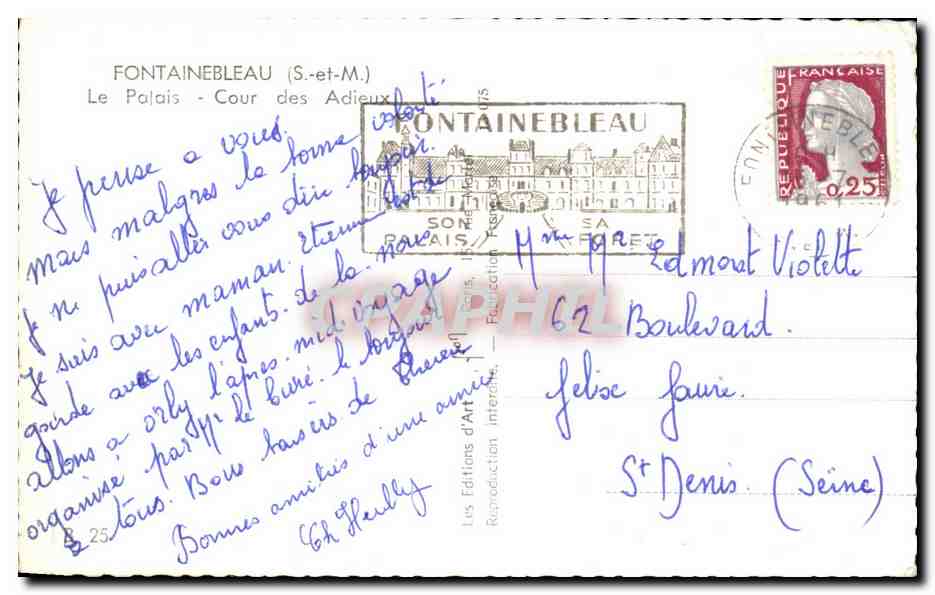 FONTAINEBLEAU (S.-et-M.)
Le Palais - Cour des Adieux
Je pense a vous.
mais malgres la bonne volonté
je ne puis aller vous dire bonjour.
Je suis avec maman. Etienne est de
garde avec les enfants de la. nous
allons a orly l'apres-midi voyage
organisé par Mr le Curé. le bonjour
a tous. Bons baisers de
Bonnes amitiés d'une amie
Ch
25
FONTAINEBLEAU
SON PALAIS
SA FORET
Les Editions d'Art
Paris, 15
Reproduction interdite. — Fabrication Française
CPAPHIL
REPUBLIQUE FRANÇAISE
0,25
FONTAINEBLEAU
7
1961
Mme Mr Edmont Violette
62 Boulevard.
Felix Faure.
St Denis. (Seine)